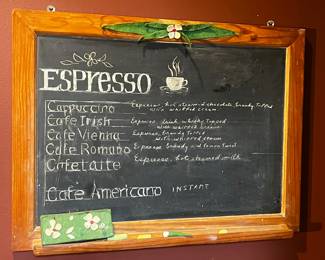 ESPRESSO
Cappuccino Espresso, hot steamed chocolate, brandy topped
with whipped cream.
Cafe Irish Espresso, Irish whisky topped
with whipped cream
Cafe Vienna Espresso, brandy topped
with whipped cream
Cafe Romano Espresso brandy and lemon twist
Cafe Latte Espresso, hot steamed milk
Cafe Americano INSTANT